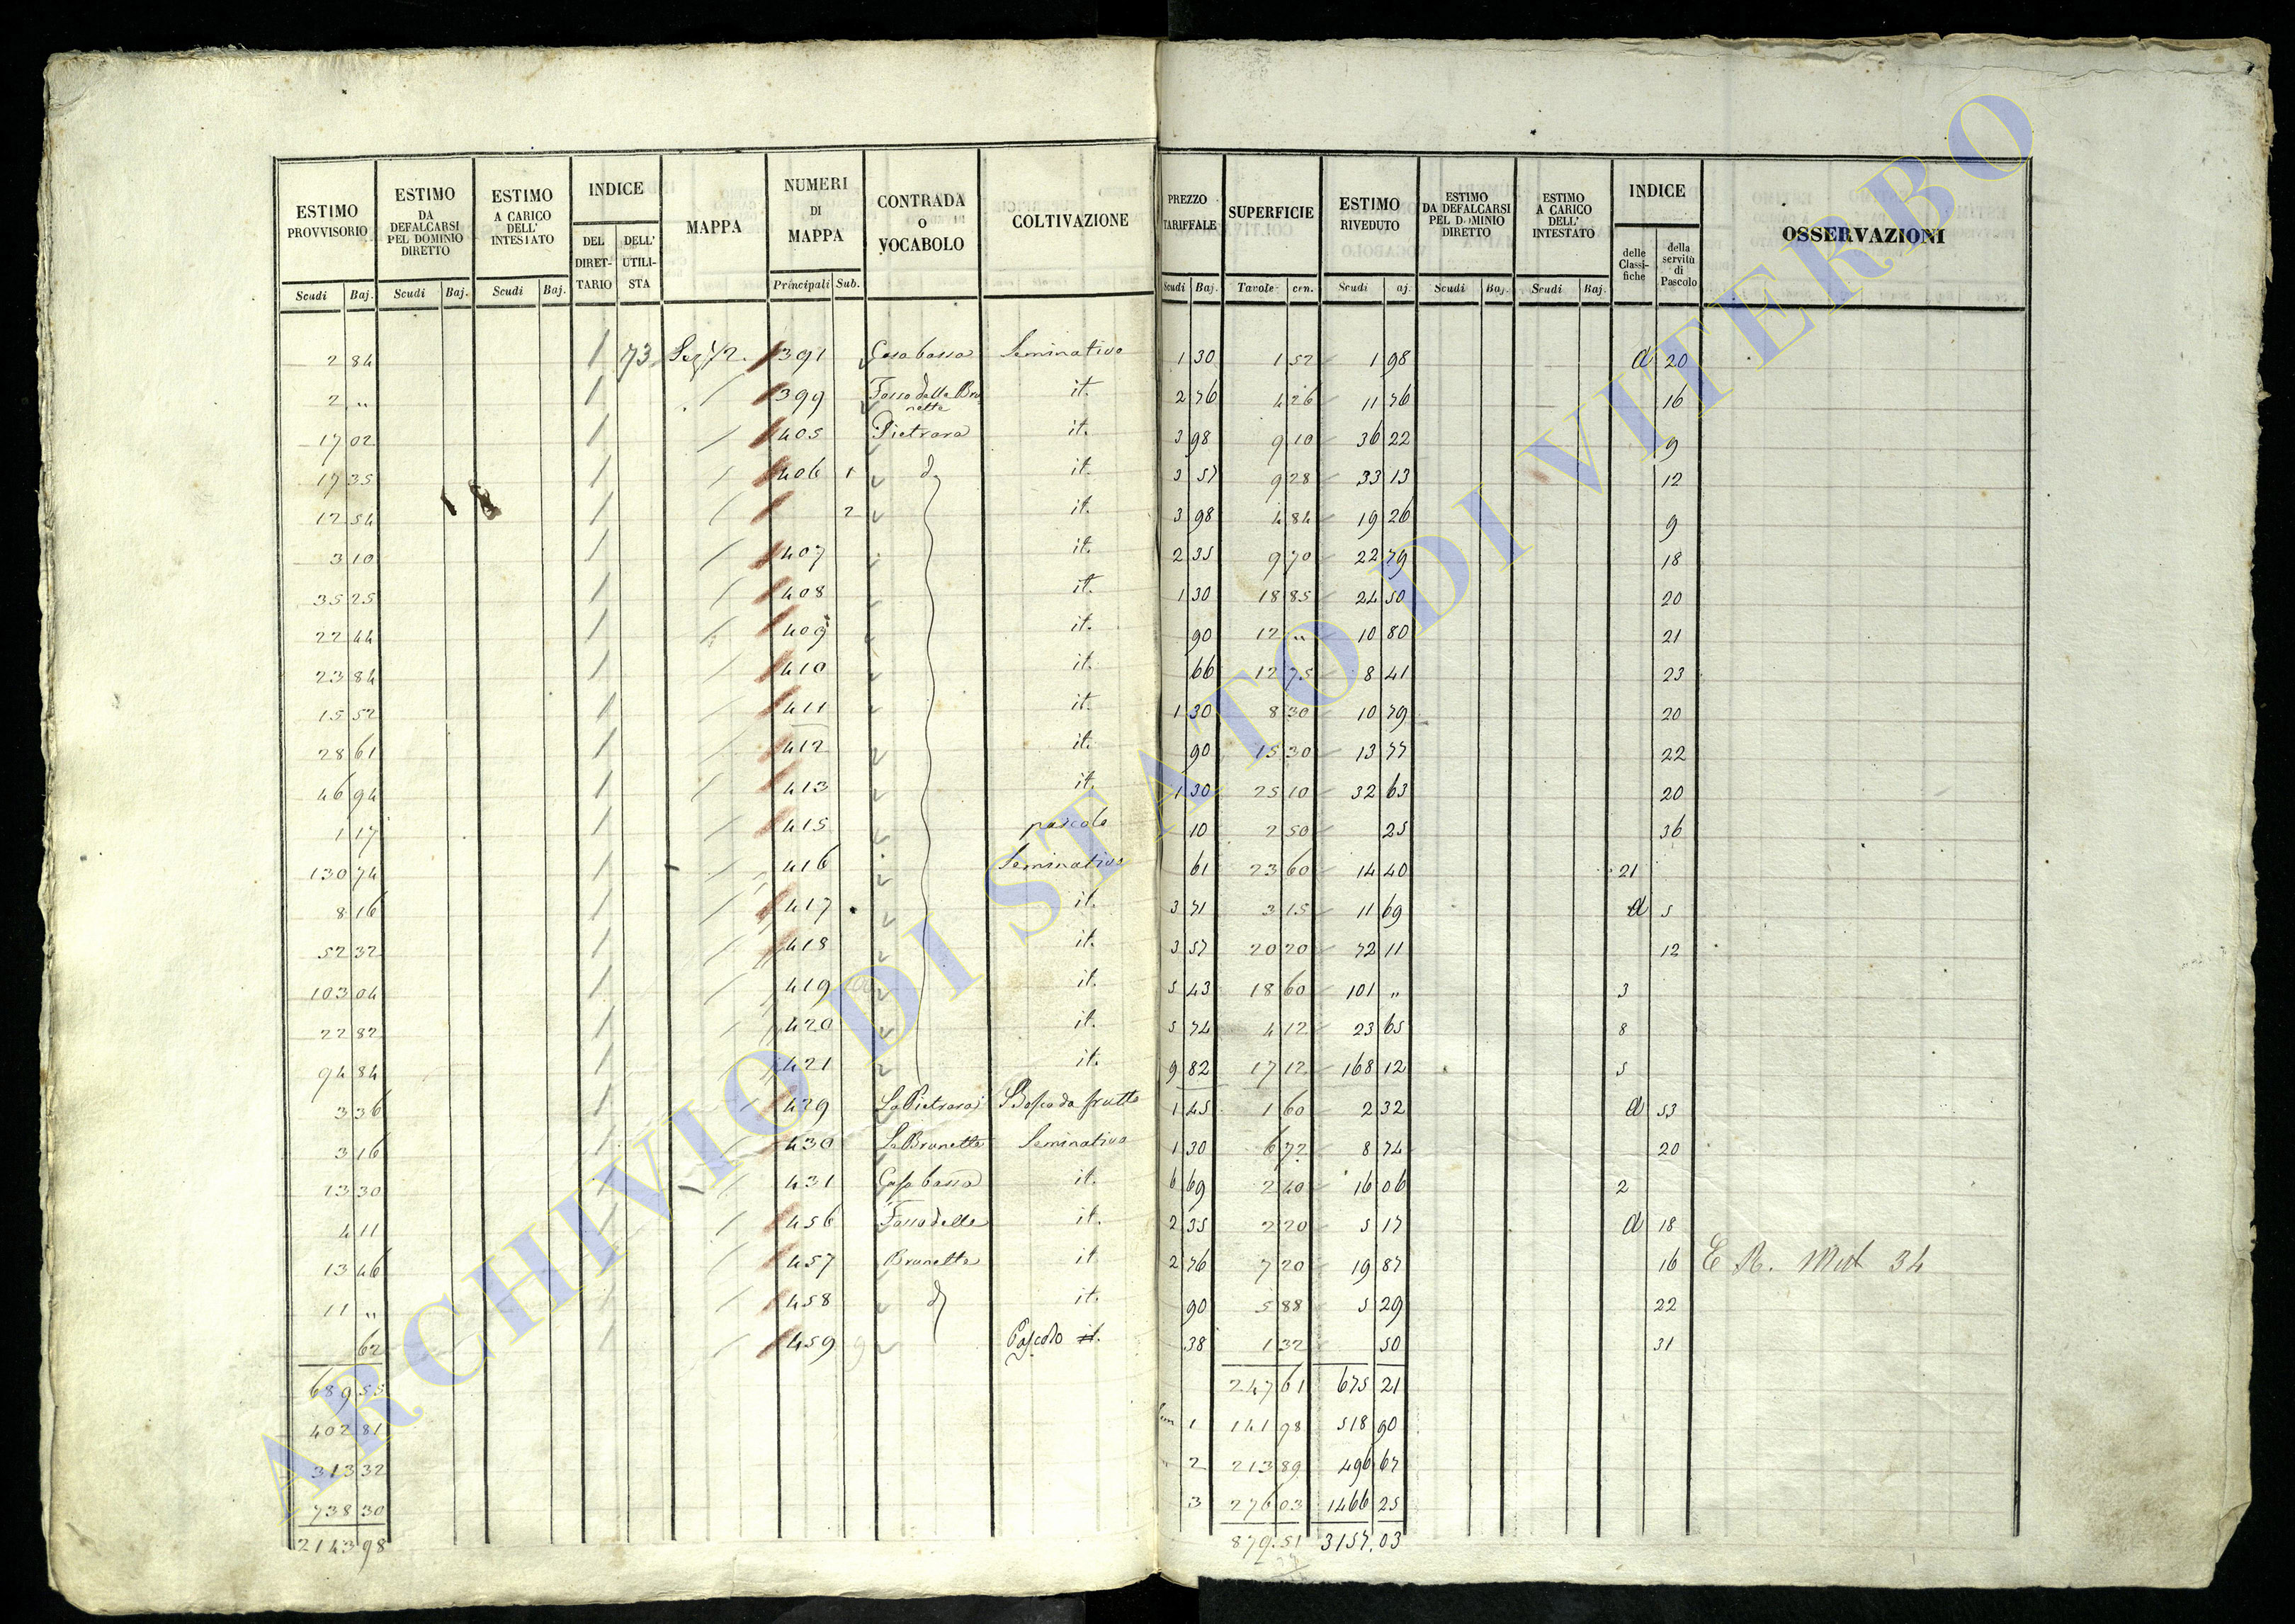 ESTIMO PROVVISORIO Scudi Baj.
ESTIMO DA DEFALCARSI PEL DOMINIO DIRETTO Scudi Baj.
ESTIMO A CARICO DELL' INTESTATO Scudi Baj.
INDICE DEL DIRETTARIO DELL' UTILISTA
MAPPA
NUMERI DI MAPPA Principali Sub.
CONTRADA O VOCABOLO
COLTIVAZIONE
PREZZO TARIFFALE Scudi Baj.
SUPERFICIE Tavole cen.
ESTIMO RIVEDUTO Scudi aj.
ESTIMO DA DEFALCARSI PEL DOMINIO DIRETTO Scudi Baj.
ESTIMO A CARICO DELL' INTESTATO Scudi Baj.
INDICE delle Classifiche della servitù di Pascolo
OSSERVAZIONI
2 84 / 73 391 Casa bassa Seminativo 1 30 1 52 1 98 d 20
2 „ / / 399 Fosso delle Brunette it. 2 76 4 26 11 76 16
17 02 / / 405 Pietrara it. 3 98 9 10 36 22 9
17 35 / / 406 1 d it. 3 57 9 28 33 13 12
12 54 / / 2 it. 3 98 4 84 19 26 9
3 10 / / 407 it. 2 35 9 70 22 79 18
35 25 / / 408 it. 1 30 18 85 24 50 20
22 44 / / 409 it. 90 12 „ 10 80 21
23 84 / / 410 it. 66 12 75 8 41 23
15 52 / / 411 it. 1 30 8 30 10 79 20
28 61 / / 412 it. 90 15 30 13 77 22
46 94 / / 413 it. 1 30 25 10 32 63 20
1 17 / / 415 pascolo 10 2 50 25 36
130 74 / / 416 Seminativo 61 23 60 14 40 21
8 16 / / 417 it. 3 71 3 15 11 69 d 5
52 32 / / 418 it. 3 57 20 20 72 11 12
103 04 / / 419 it. 5 43 18 60 101 „ 3
22 82 / / 420 it. 5 74 4 12 23 65 8
94 84 / / 421 it. 9 82 17 12 168 12 5
3 36 / / 429 La Pietrara Bosco da frutto 1 45 1 60 2 32 d 53
3 16 / / 430 Le Brunette Seminativo 1 30 6 72 8 74 20
13 30 / / 431 Casa bassa it. 6 69 2 40 16 06 2
4 11 / / 456 Fosso delle it. 2 35 2 20 5 17 d 18
13 46 / / 457 Brunette it. 2 76 7 20 19 87 16 E R. Mut 34
11 „ / / 458 d it. 90 5 88 5 29 22
62 / / 459 Pascolo it. 38 1 32 50 31
689 55 247 61 675 21
402 81 1 141 98 518 90
313 32 2 213 89 496 67
738 30 3 276 03 1466 25
2143 98 879.51 3157.03
ARCHIVIO DI STATO DI VITERBO